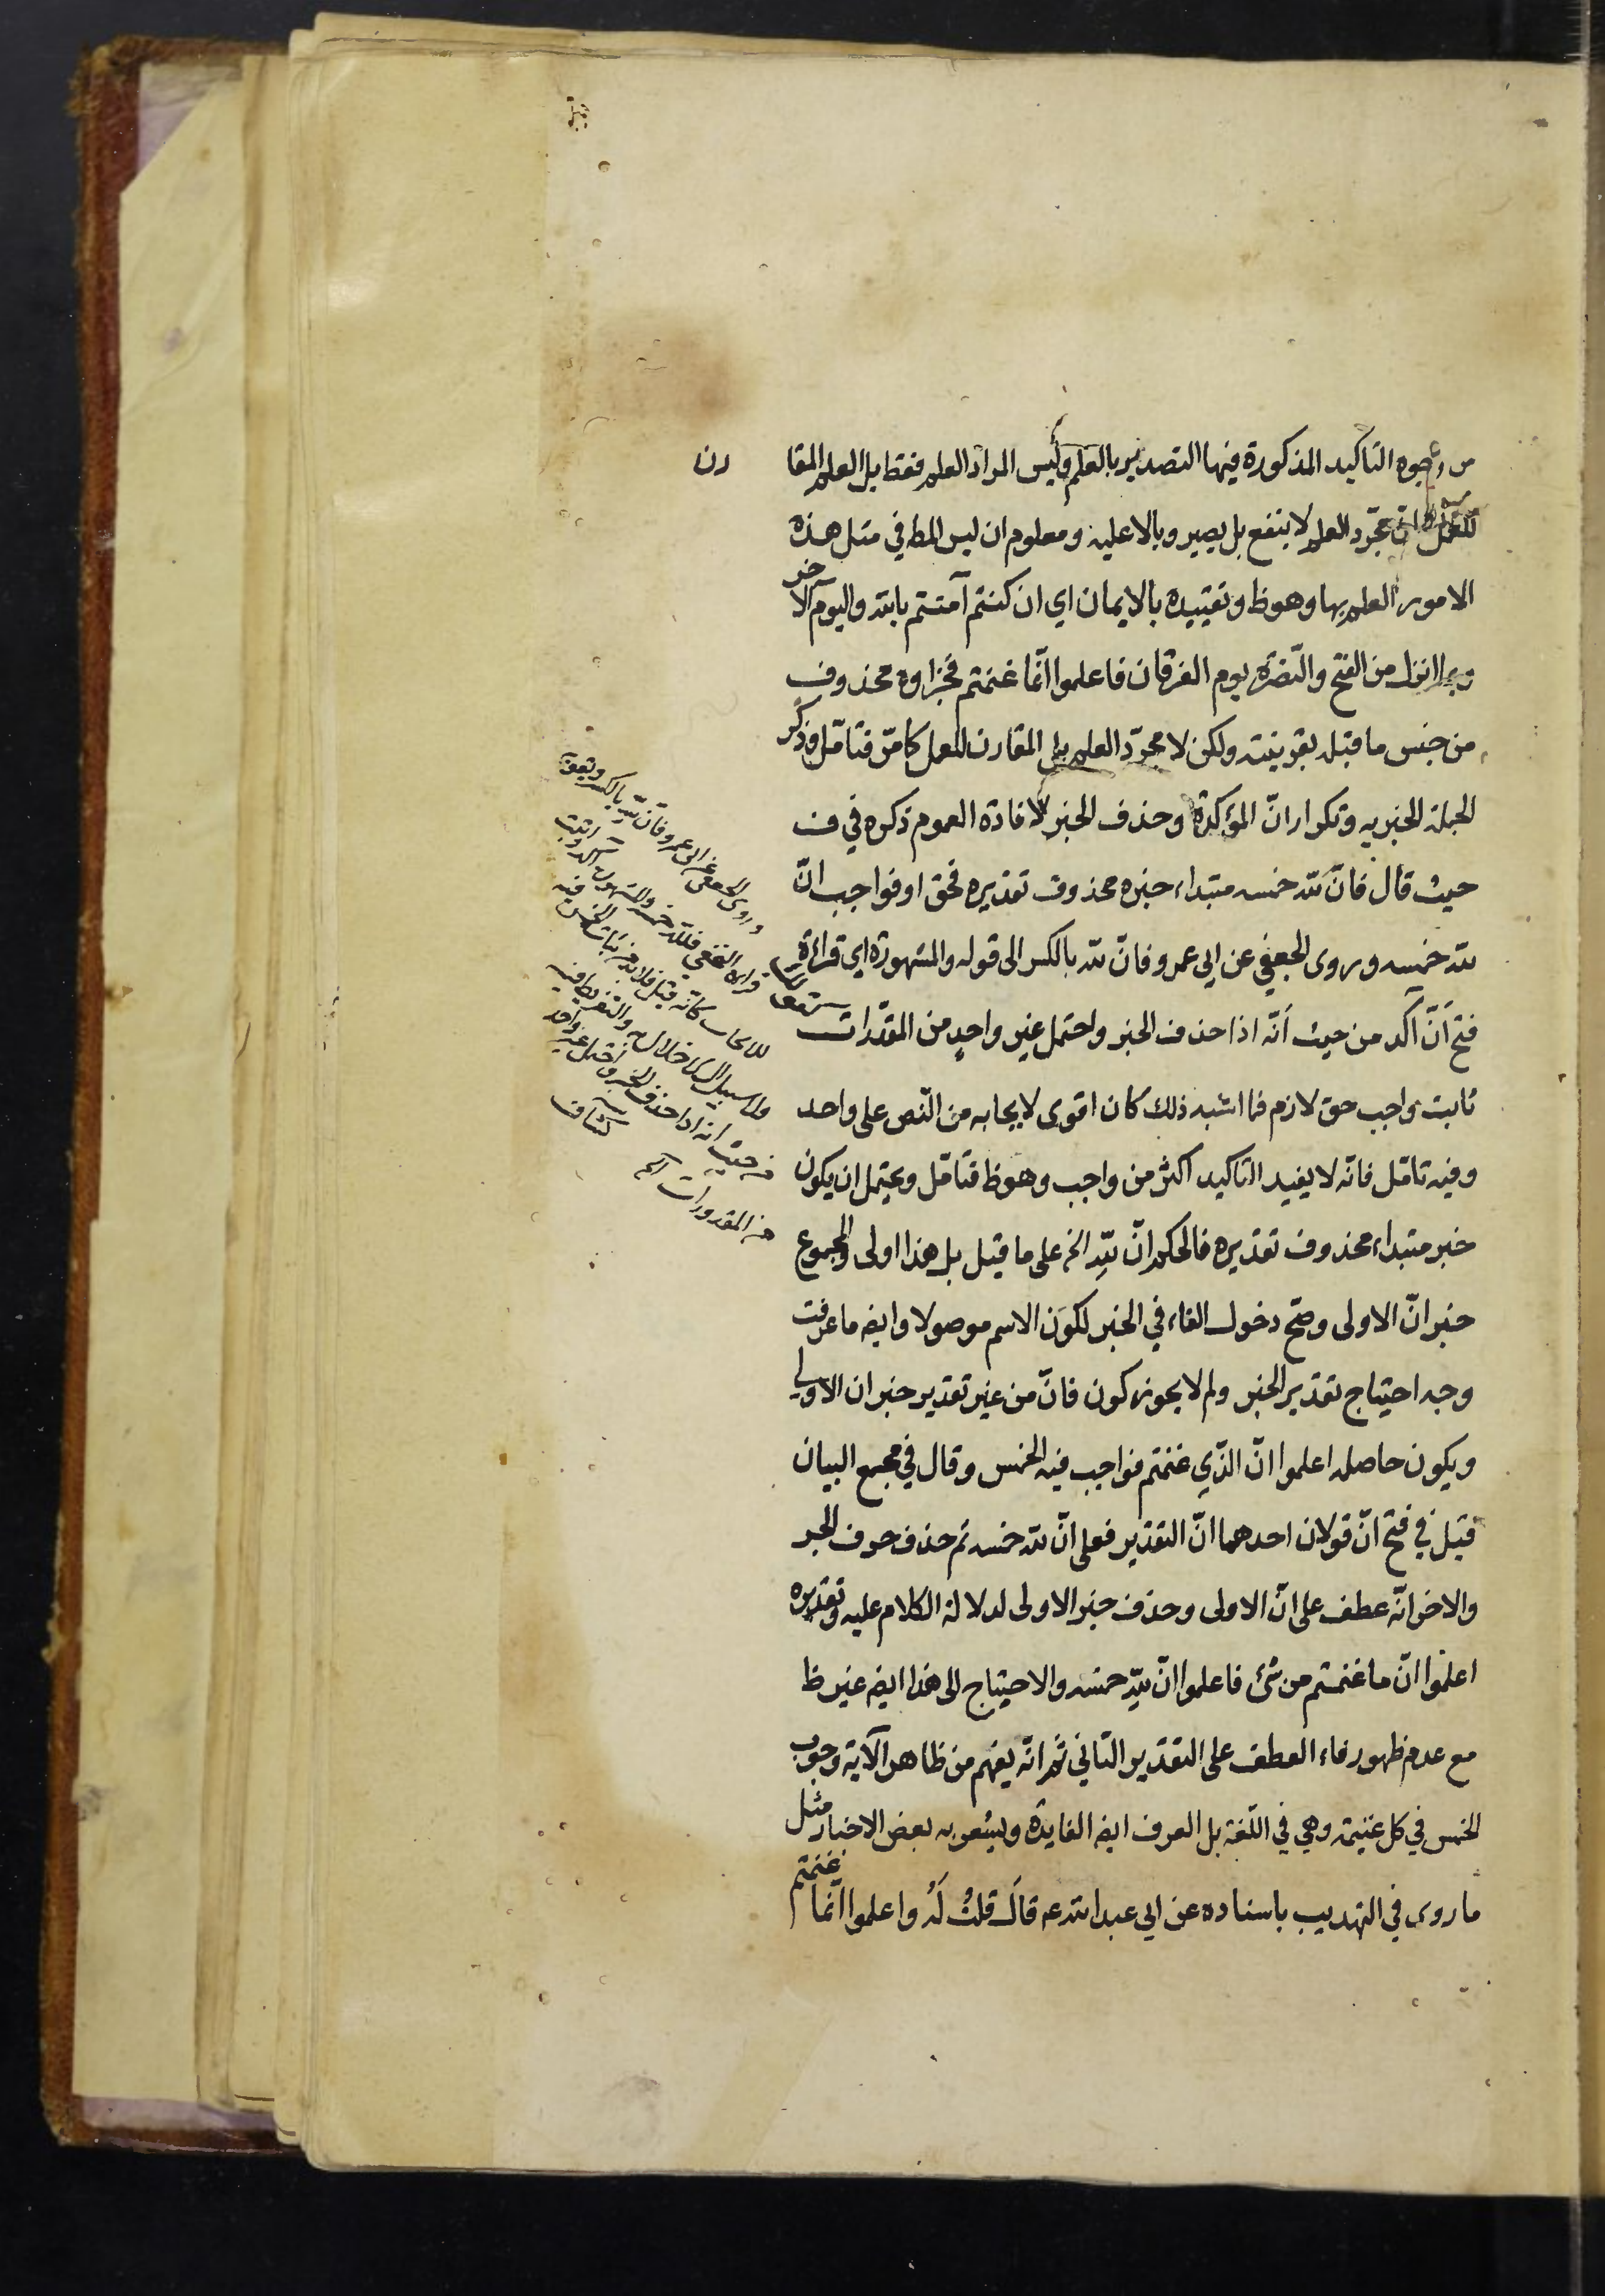 من وجوه التاكيد المذكورة فيها التصدير بالعلم وليس المراد العلم فقط بل العلم المقا رن
للعمل فان مجرّد العلم لا ينفع بل يصير وبالا عليه ومعلوم ان ليس المط في مثل هذه
الامور العلم بها وهو ظ وتقييده بالايمان اي ان كنتم آمنتم بالله واليوم الآخر
وبما انزل من الفتح والنّصرة يوم الفرقان فاعلموا انّما غنمتم فجزاؤه محذوف
من جنس ما قبله بقرينته ولكن لا مجرّد العلم بل المقارن للعمل كما مرّ فتامّل وذكر
الجملة الخبريه وتكرار انّ المؤكدة وحذف الخبر لافادة العموم ذكره في ف
حيث قال فانّ لله خمسه مبتداء خبره محذوف تقديره فحق او فواجب انّ
لله خمسه وروى الجعفي عن ابي عمرو فانّ لله بالكسر الى قوله والمشهورة اي قراءة
فتح أنّ آكد من حيث أنّه اذا حذف الخبر واحتمل غير واحدٍ من المقدّرات
ثابت واجب حق لازم فما اشبه ذلك كان اقوى لايجابه من النّص على واحد
وفيه تامّل فانّه لا يفيد التاكيد اكثر من واجب وهو ظ فتامّل ويحتمل ان يكون
خبر مبتداء محذوف تقديره فالحكم انّ لله الخ على ما قيل بل هذا اولى والمجموع
خبر انّ الاولى وصحّ دخول الفاء في الخبر لكون الاسم موصولا وايضه ما عرفت
وجه احتياج تقدير الخبر ولم لا يجوز كون فانّ من غير تقدير خبر ان الاولى
ويكون حاصله اعلموا انّ الذّي غنمتم فواجب فيه الخمس وقال في مجمع البيان
قيل في فتح انّ قولان احدهما انّ التقدير فعلى انّ لله خمسه ثم حذف حرف الجر
والاخر انّه عطف على انّ الاولى وحذف خبر الاولى لدلالة الكلام عليه وتقديره
اعلموا انّ ما غنمتم من شئ فاعلموا انّ لله خمسه والاحتياج الى هذا ايضه غير ظ
مع عدم ظهور فاء العطف على التقدير الثاني ثم انّه يفهم من ظاهر الآية وجوب
الخمس في كل غنيمة وهي في اللّغة بل العرف ايضه الفايدة ويشعر به بعض الاخبار مثل
ما روى في التهذيب باسناده عن ابي عبد الله ع قال قلتُ لَهُ واعلموا انّما غنمتم
وروى الجعفي عن ابي عمرو فان لله بالكسر ويقويه
قراءة النخعي فلله خمسه والمشهورة آكد واثبت
للايجاب كانه قيل فلا بد من ثبات الخمس فيه
ولا سبيل الى الاخلال به والتفريط فيه
من حيث انه اذا حذف الخبر واحتمل غير واحد
من المقدرات آه كشاف